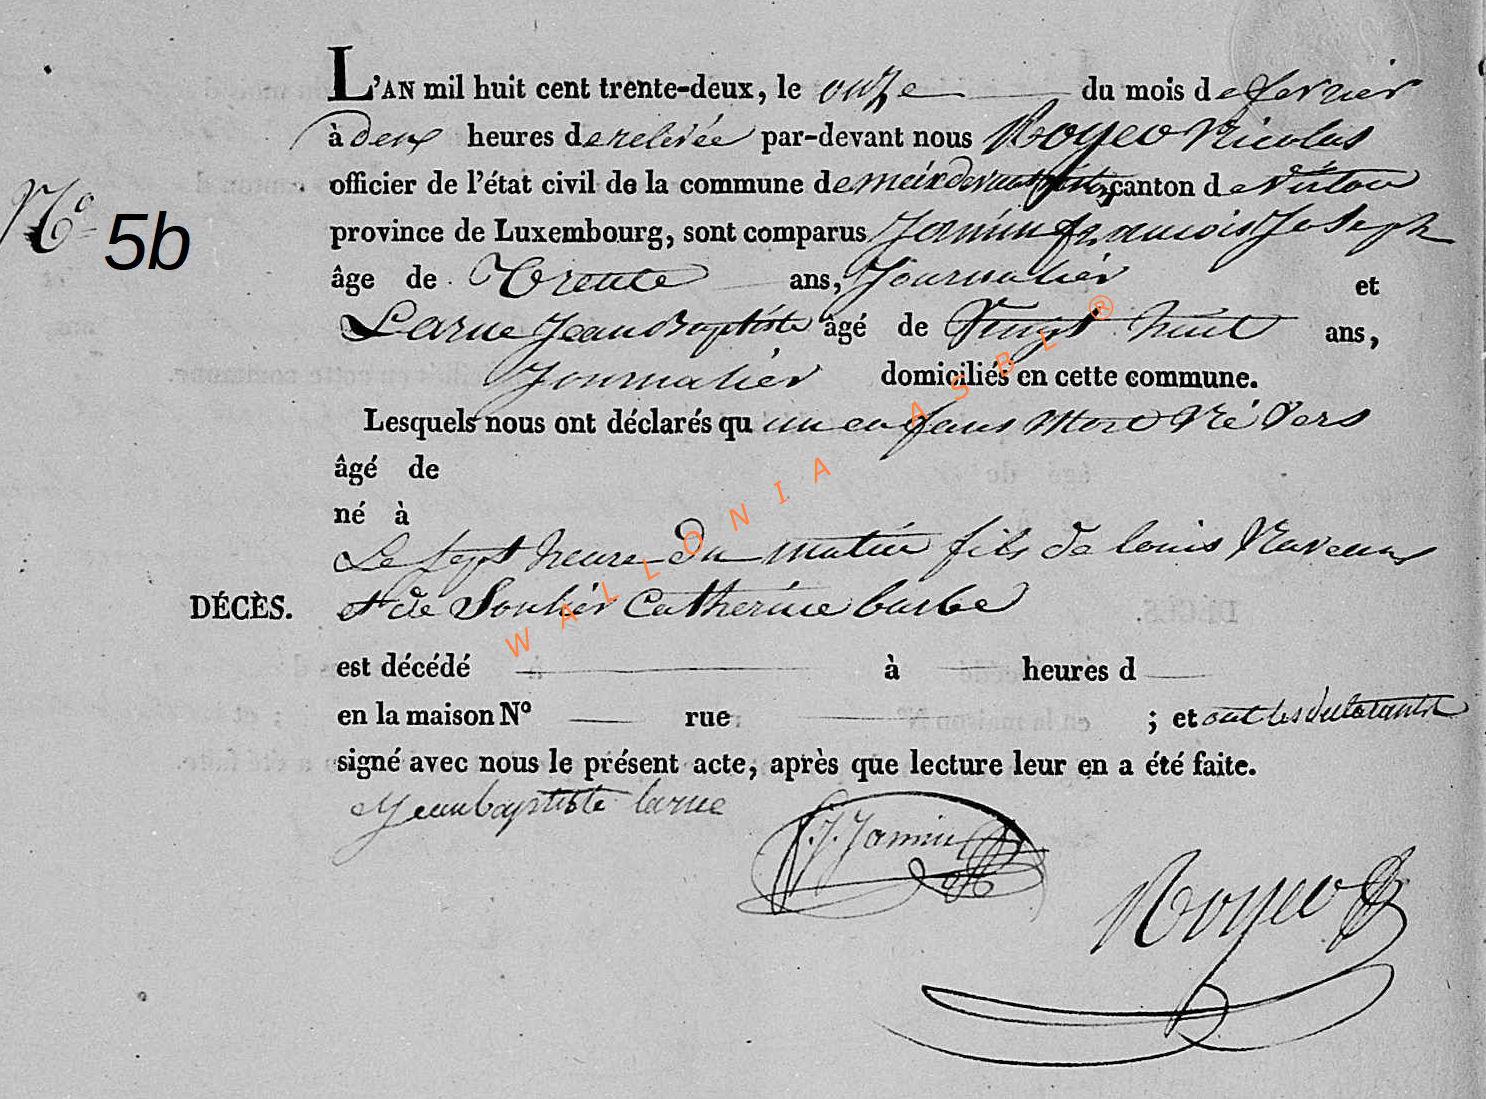 L'AN mil huit cent trente-deux, le onze du mois de fevrier
à deux heures de relevée par-devant nous Royer Nicolas
officier de l'état civil de la commune de meix devant virton, canton de Virton
province de Luxembourg, sont comparus Jamin françois Joseph
âge de Trente ans, Journalier et
Larue Jean Baptiste âgé de Vingt huit ans,
Journalier domiciliés en cette commune.
Nº 5b
Lesquels nous ont déclarés qu un enfans Mort Né Vers
âgé de
né à
Le Sept heure du matin fils de louis
DÉCÈS. et de Soulier Catherine barbe
est décédé à heures d
en la maison Nº rue ; et ont les
signé avec nous le présent acte, après que lecture leur en a été faite.
Jean baptiste larue
f. J. Jamin
Royer
WALLONIA ASBL ®